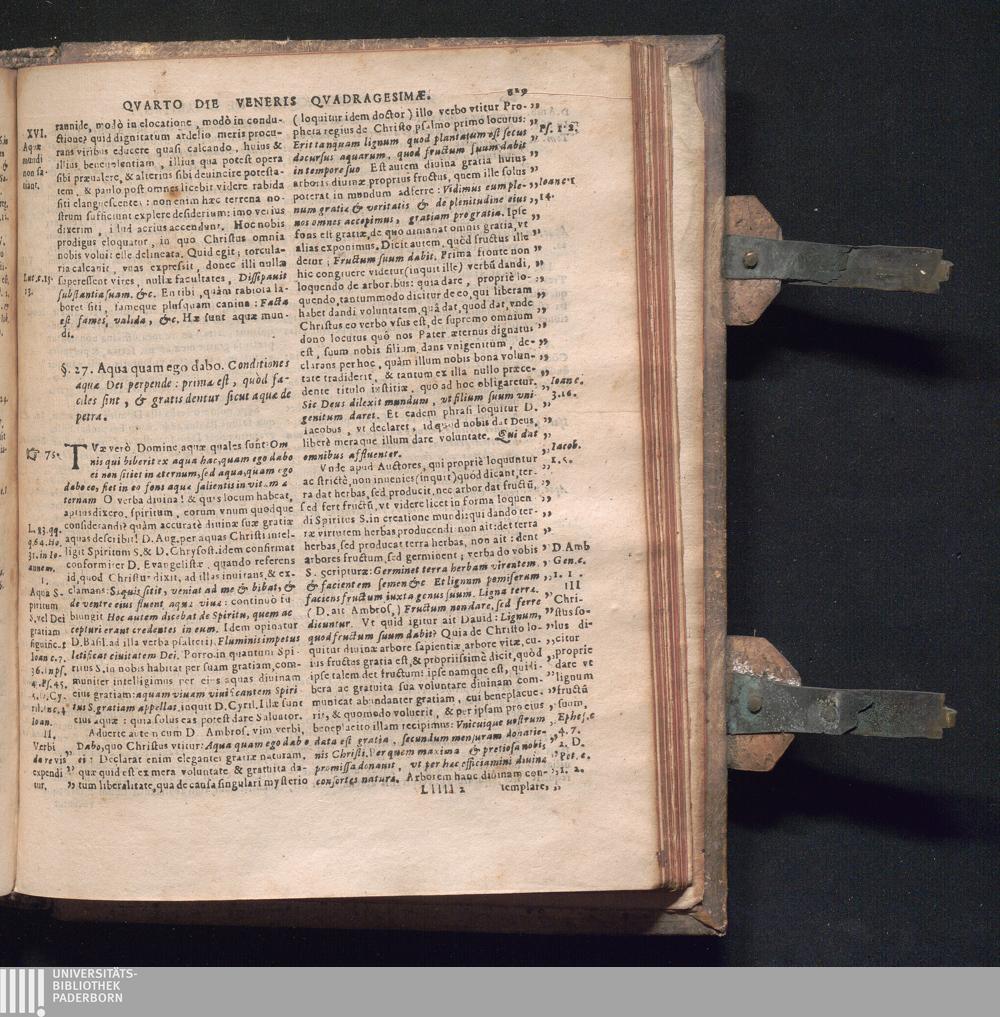 QVARTO DIE VENERIS QVADRAGESIMÆ.
829
XVI.
Aquæ
mundi
non sa-
tiant.
Luc. c. 15.
13.
rannide, modò in elocatione, modò in condu-
ctione? quid dignitatum ardelio meris procu-
rans viribus educere quasi calcando, huius &
illius beneuolentiam, illius qua potest opera
sibi præualere, & alterius sibi deuincire potesta-
tem, & paulo post omnes licebit videre rabida
siti elanguescentes: non enim hæc terrena no-
strum sufficiunt explere desiderium: imo verius
dixerim, illud acrius accendunt. Hoc nobis
prodigus eloquatur, in quo Christus omnia
nobis voluit esse delineata. Quid egit; torcula-
ria calcauit, vuas expressit, donec illi nullæ
superessent vires, nullæ facultates, Dissipauit
substantiã suam. &c. En tibi, quàm rabiosa la-
boret siti, fameque plusquam canina: Facta
est fames valida, &c. Hæ sunt aquæ mun-
di.
§. 27. Aqua quam ego dabo. Conditiones
aquæ Dei perpende: prima est, quòd fa-
ciles sint, & gratis dentur sicut aquæ de
petra.
75.
L. 83. qq.
q. 64. Ho.
31. in Io-
annem.
I.
Aqua S-
piritum
S. vel Dei
gratiam
significat
Ioan c. 7.
36. In ps.
Ioan.
II.
Verbi
do re vis
expendi
tur.
TVæ verò Domine, aquæ quales sunt? Om
nis qui biberit ex aqua hac, quam ego dabo
ei non sitiet in æternum, sed aqua, quam ego
dabo eo, fiet in eo fons aquæ salientis in vitam æ
ternam O verba diuina! & quis locum habeat,
aptius dixero, spiritum, eorum vnum quodque
considerandi? quàm accuratè diuinæ suæ gratiæ
aquas describit! D. Aug. per aquas Christi intel-
ligit Spiritum S. & D. Chrysost. idem confirmat
conformiter D. Euangelistæ, quando referens
id, quod Christus dixit, ad illas inuitans, & ex-
clamans: Si quis sitit, veniat ad me & bibat, &
de ventre eius fluent aquæ viuæ: continuò su
biungit Hoc autem dicebat de Spiritu, quem ac
cepturi erant credentes in eum. Idem opinatur
D. Basil. ad illa verba psalteris. Fluminis impetus
letificat ciuitatem Dei. Porro in quantum Spi-
ritus S. in nobis habitat per suam gratiam, com-
muniter intelligimus per eius aquas diuinam
eius gratiam: aquam viuam viuificantem Spiri
tus S. gratiam appellat, inquit D. Cyril. Illæ sunt
eius aquæ: quia solus eas potest dare Saluator.
Aduerte autem cum D. Ambros. vim verbi,
Dabo, quo Christus vtitur: Aqua quam ego dabo
ei: Declarat enim elegantes gratiæ naturam,
quæ quid est ex mera voluntate & gratuita da-
tum liberalitate, qua de causa singulari mysterio
(loquitur idem doctor) illo verbo vtitur Pro-
pheta regius de Christo psalmo primo locutus:
Erit tanquam lignum quod plantatum est secus
decursus aquarum, quod fructum suum dabit
in tempore suo Est autem diuina gratia huius
arboris diuinæ proprius fructus, quem ille solus
poterat in mundum adferre: Vidimus eum ple-
num gratiæ & veritatis & de plenitudine eius
nos omnes accepimus, gratiam pro gratia. Ipse
fons est gratiæ, de quo dimanat omnis gratia, vt
alias exponimus. Dicit autem, quòd fructus ille
detur; Fructum suum dabit. Prima fronte non
hic congruere videtur (inquit ille) verbũ dandi,
loquendo de arboribus: quia dare, propriè lo-
quendo, tantummodo dicitur de eo, qui liberam
habet dandi voluntatem, qua dat, quod dat, vnde
Christus eo verbo vsus est, de supremo omnium
dono locutus quò nos Pater æternus dignatus
est, suum nobis filium dans vnigenitum, de-
clarans per hoc, quàm illum nobis bona volun-
tate tradiderit, & tantum ex illa nullo præce-
dente titulo iustitiæ, quo ad hoc obligaretur.
Sic Deus dilexit mundum, vt filium suum vni-
genitum daret. Et eadem phrasi loquitur D.
Iacobus, vt declaret, id quod nobis dat Deus,
liberè meraque illum dare voluntate. Qui dat
omnibus affluenter.
Vnde apud Auctores, qui propriè loquuntur
ac strictè, non inuenies (inquit) quòd dicant, ter-
ra dat herbas, sed producit, nec arbor dat fructũ,
sed fert fructũ, vt videre licet in forma loquen
di Spiritus S. in creatione mundi: qui dando ter-
ræ virtutem herbas producendi non ait: det terra
herbas, sed producat terra herbas, non ait: dent
arbores fructum, sed germinent; verba do vobis
S. scripturæ: Germinet terra herbam virentem
& facientem semen &c Et lignum pomiferum
faciens fructum iuxta genus suum. Ligna terræ
(D. ait Ambros,) Fructum non dare, sed ferre
dicuntur. Vt quid igitur ait Dauid: Lignum,
quod fructum suum dabit? Quia de Christo lo-
quitur diuinæ arbore sapientiæ, arbore vitæ, cu-
ius fructus gratia est, & propriissimè dicit, quòd
ipse talem det fructum: ipse namque est, qui li-
bera ac gratuita sua voluntare diuinam com-
municat abundanter gratiam, cui beneplacue-
rit, & quomodo voluerit, & per ipsam pro eius
beneplacito illam recipimus: Vnicuique nostrum
data est gratia, secundum mensuram donatio-
nis Christi. Per quem maxima & pretiosa nobis
promissa donauit, vt per hæc efficiamini diuinæ
consortes naturæ. Arborem hanc diuinam con-
Ps. 1. 2.
Ioanc. 1
14.
Ioan c.
3. 16.
Iacob.
1. 5.
D. Amb
Gen. c.
1. 1.
III
Chri-
stus so-
lus di
citur
proprie
dare vt
lignum
fructũ
suum,
Ephes. c
4. 7.
2. D.
Pet. c.
1. 2.
Lllll 2
templare,
UNIVERSITÄTS-
BIBLIOTHEK
PADERBORN